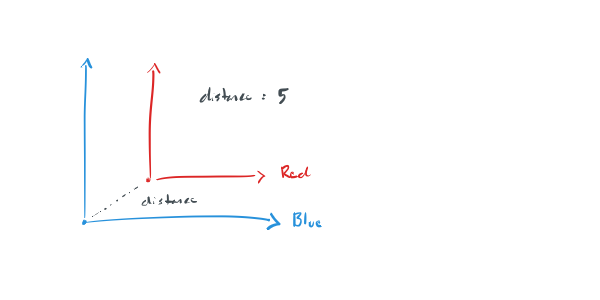 distance : 5
Red
distance
Blue